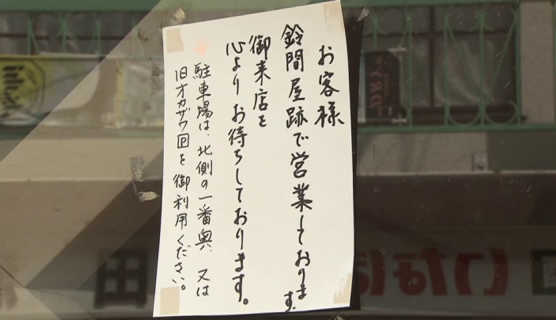 お客様
鈴間屋跡で営業しております
御来店を
心よりお待ちしております。
駐車場は、北側の一番奥、又は
旧オカザワ回を御利用ください。